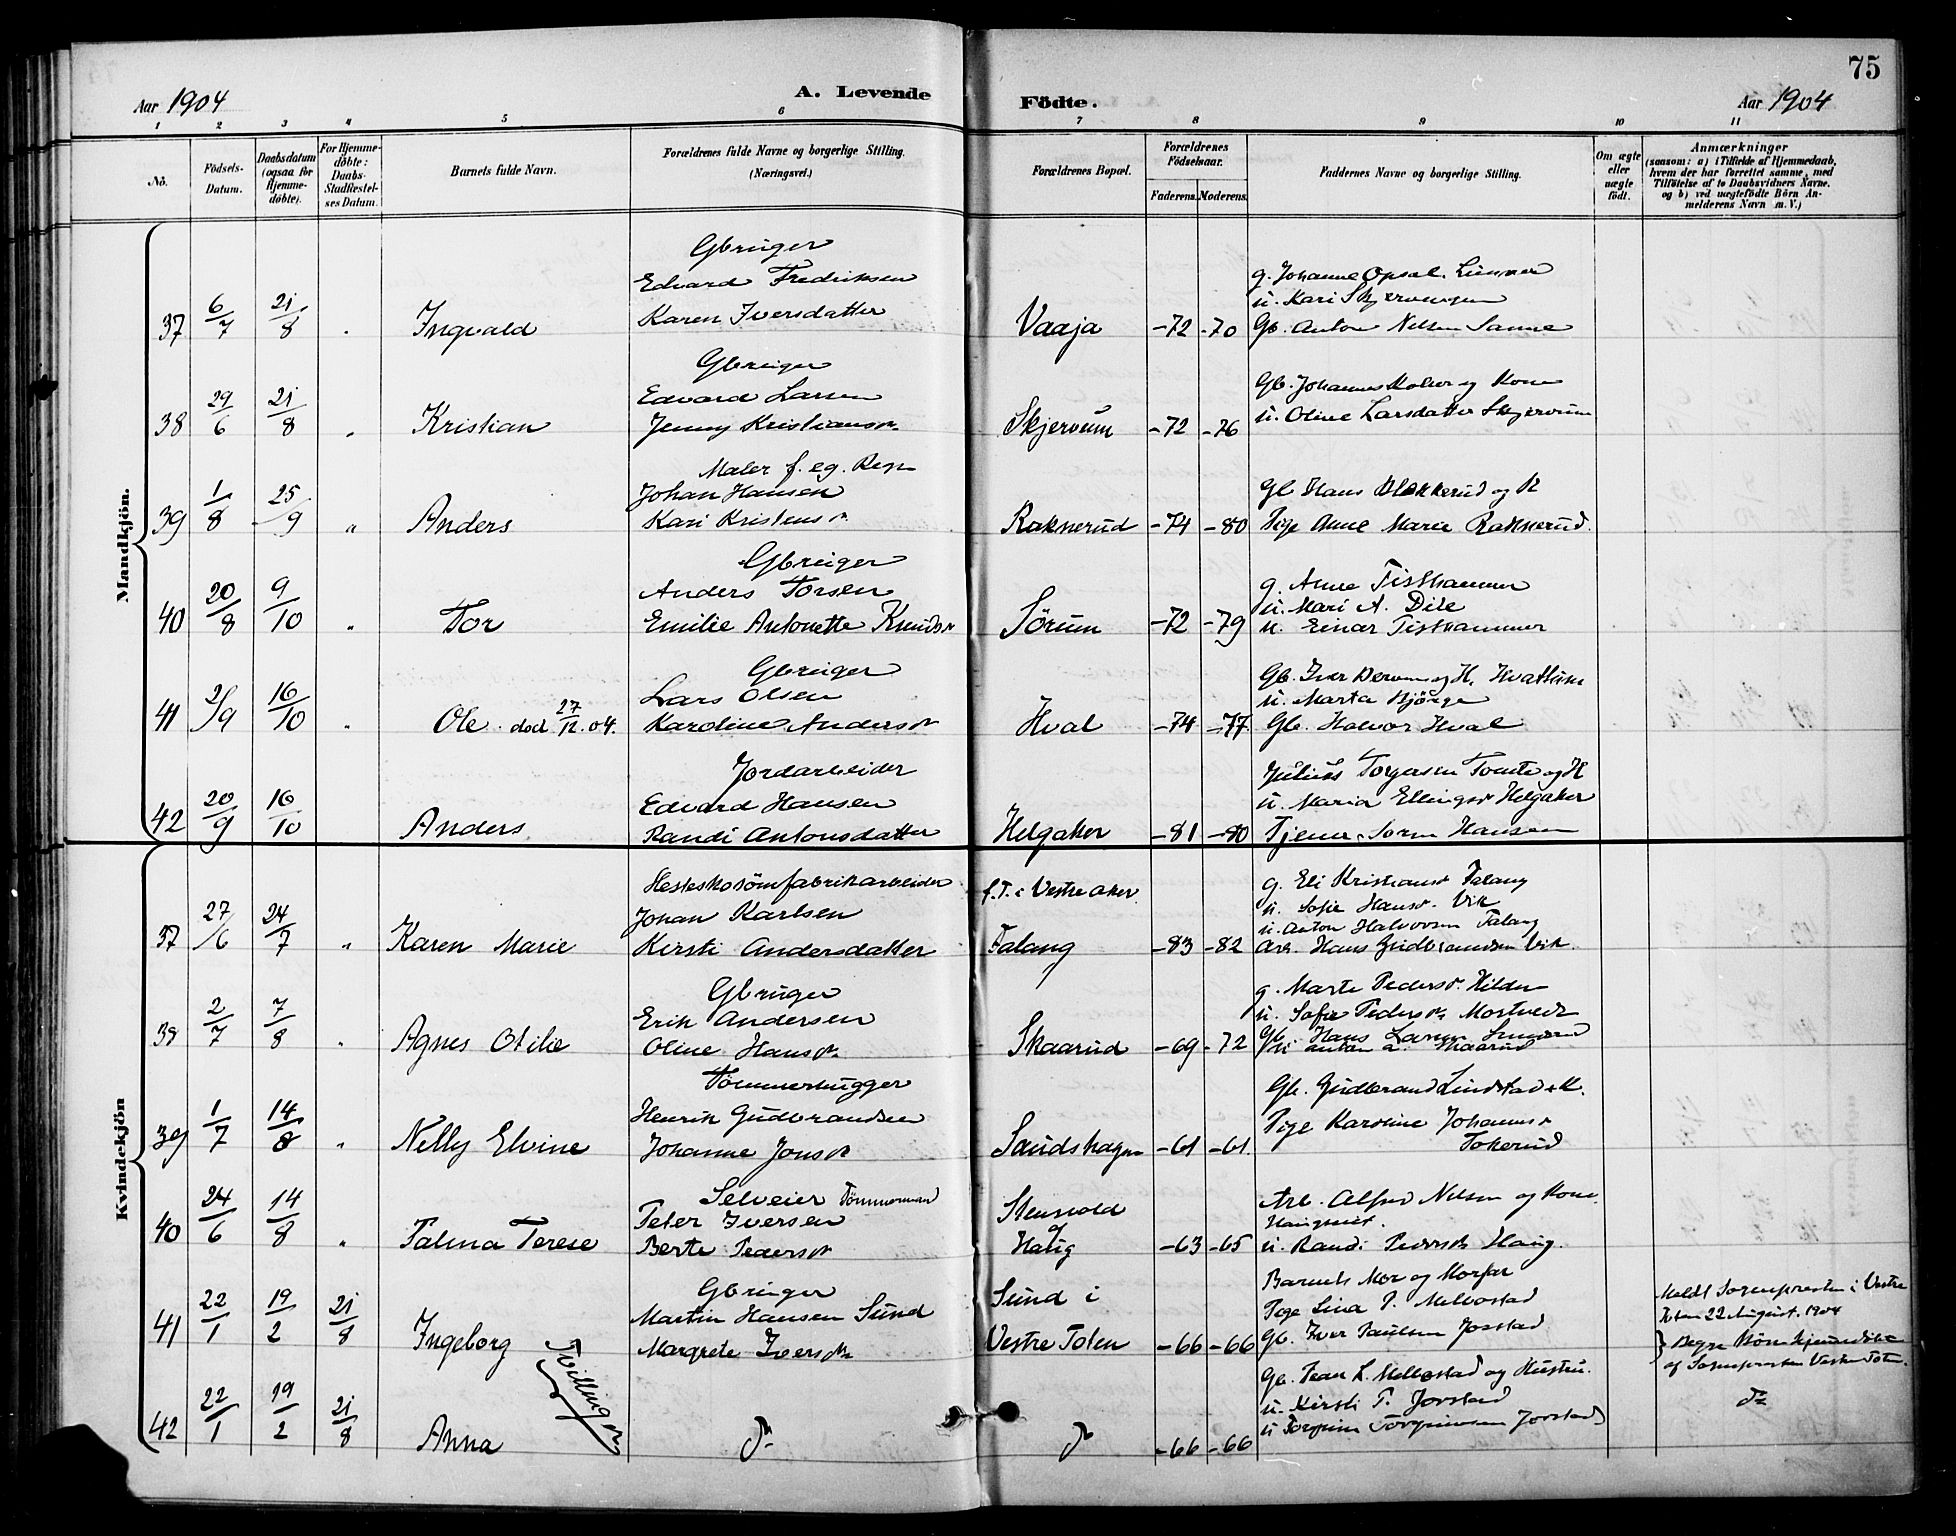 75
Aar 1904 A. Levende Födte. Aar 1904
1 2 3 4 5 6 7 8 9 10 11
No.
Födsels-Datum.
Daabsdatum (ogsaa for Hjemme-döbte).
For Hjemme-døbte: Daabs-Stadfæstel-ses Datum.
Barnets fulde Navn.
Forældrenes fulde Navne og borgerlige Stilling. (Næringsvei.)
Forældrenes Bopæl.
Forældrenes Födselsaar.
Faderens. Moderens.
Faddernes Navne og borgerlige Stilling.
Om ægte eller uægte født.
Anmærkninger
(saasom: a) i Tilfælde af Hjemmedaab, hvem der har forrettet samme, med Tilföielse af to Daabsvidners Navne. og b) ved uægtefödte Börn An-melderens Navn m. V.)
Mandkjön.
Gbruger
Edvard Fredriksen g. Johanne Opsal
37 6/7 21/8 " Ingvald Karen Iversdatter Vaaja -72 -70 u. Kari Skjervengen
Gb. Anton Nelsen Sanne
Gbruger
Edvard Larsen Gb. Johannes og Kone
38 29/6 21/8 " Kristian Jenny Kristiansdr Skjervum -72 -76 u. Oline Larsdatter Skjervum
Maler f. eg. Regn
Johan Hansen Gb Hans Blekkerud og K
39 1/8 25/9 " Anders Kari Kristensdr Raknerud -74 -80 Pige Anne Marie Raknerud.
Gbruger
Anders Torsen g. Anne Tisthammer
u. Mari A.
40 20/8 9/10 " Tor Emilie Antonette Knudsdr Sörum -72 -79 u. Einar Tisthammer
Gbruger
Lars Olsen Gb. Iver og H. Hvattum
u. Marta Björge
41 2/9 16/10 " Ole. död 27/12.04. Karoline Andersdr Hval -74 -77 Gb. Halvor Hval
Jordarbeider Julius Torgersen Tomte og H
Edvard Hansen u. Maria Ellingsdr Helgaker
42 20/9 16/10 Anders Randi Antonsdatter Helgaker -81 -80 Tjener Sorn Hansen
Kvindekjön
Hesteskosömfabrikarbeider f. T. i Vestre Aker g. Eli Kristiansdr Falang
Johan Karlsen u. Sofie Hansdr. Vik
u. Anton Halvorsen Falang
37 27/6 24/7 " Karen Marie Kirsti Andersdatter Falang -83 -82 Arb. Hans Gudbrandsen Vik.
Gbruger g. Marte Pedersdr. Hilden
Erik Andersen u. Sofie Pedersdr
38 2/7 7/8 " Agnes Otilie Oline Hansdr Skaarud -69 -72 Gb. Hans Larsen
u Anton A. Skaarud
Tömmerhugger Gb. Gudbrand Lindstad + K.
Henrik Gudbrandsen Pige Karoline Johannesdr
39 1/7 14/8 " Nelly Elvine Johanne Jonsdr Sandshagen -61 -61 Tokerud
Selveier Tömmermand Stensvold Arb. Alfred Nelsen og Kone
Peter Iversen
40 24/6 14/8 " Palma Terese Berte Pedersdr Haug -63 -65 u. Randi Pedersdr Haug.
Gbruger Sund i Barnets Mor og Morfar
Martin Hansen Sund Pige Lina P. Melbostad
41 22/1 19/2 21/8 Ingeborg Margrete Iversdr Vestre Toten -66 -66 Gb. Iver Paulsen Josstad
Meldt Sognepresten i Vestre Toten 22 August. 1904
} Begge Börn hjemmedöbte af Sognepresten Vestre Toten.
Tvillinger
Gb. Iean L. Melbostad og Hustru.
u. Kirsti P. Jorstad
42 22/1 19/2 21/8 Anna do do -66 -66 u Torgrim Torgrimsen Jorstad do